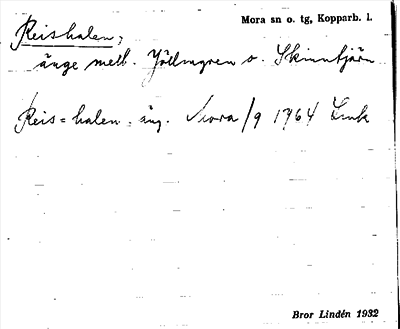 Mora sn o. tg, Kopparb. l.
Reishalen,
änge mell. Jöllmyren o. Skinntjärn
Reis=halen, äng. Mora/9 1764 Link
Bror Lindén 1932